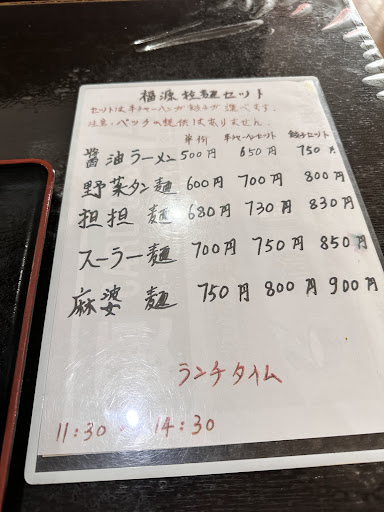 福源拉麺セット
セットは半チャーハンか餃子が選べます.
注意:パックの提供はありません.
単価 半チャーハンセット 餃子セット
醤油ラーメン 500円 650円 750円
野菜タン麺 600円 700円 800円
担担麺 680円 730円 830円
スーラー麺 700円 750円 850円
麻婆麺 750円 800円 900円
ランチタイム
11:30 ~ 14:30